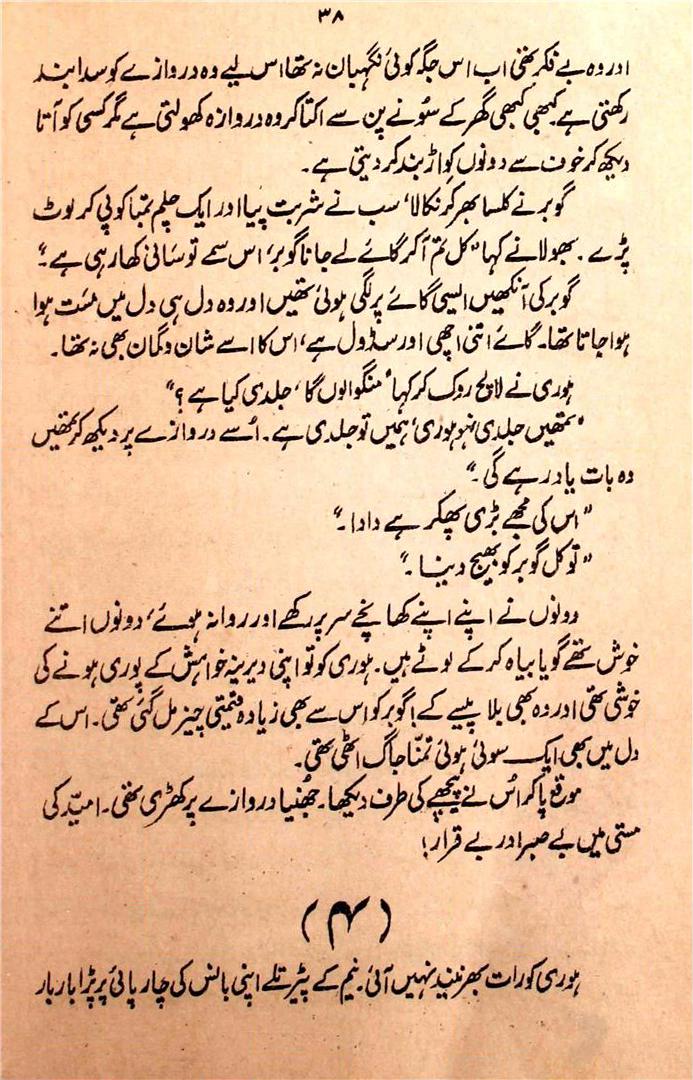 ۳۸
اور وہ بے فکر تھی اب اس جگہ کوئی نگہبان نہ تھا اس لیے وہ دروازے کو سدا بند
رکھتی ہے کبھی کبھی گھر کے سُونے پن سے اکتا کر وہ دروازہ کھولتی ہے مگر کسی کو آتا
دیکھ کر خوف سے دونوں کواڑ بند کر دیتی ہے۔
گوبر نے کلسا بھر کر نکالا، سب نے شربت پیا اور ایک چلم تمباکو پی کر لوٹ
پڑے۔ بھولا نے کہا "کل تم آ کر گائے لے جانا گوبر، اس سمے تو سانی کھا رہی ہے۔"
گوبر کی آنکھیں ایسی گائے پر لگی ہوئی تھیں اور وہ دل ہی دل میں مست ہوا
ہوا جاتا تھا۔ گائے اتنی اچھی اور سڈول ہے، اس کا اسے شان و گمان بھی نہ تھا۔
ہوری نے لالچ روک کر کہا "منگوا لوں گا، جلدی کیا ہے؟"
"تمھیں جلدی نہ ہو ہوری، ہمیں تو جلدی ہے۔ اُسے دروازے پر دیکھ کر تمھیں
وہ بات یاد رہے گی۔"
"اس کی مجھے بڑی پھکر ہے دادا۔"
"تو کل گوبر کو بھیج دینا۔"
دونوں نے اپنے اپنے کھانچے سر پر رکھے اور روانہ ہوئے، دونوں اتنے
خوش تھے گویا بیاہ کر کے لوٹے ہیں۔ ہوری کو تو اپنی دیرینہ خواہش کے پوری ہونے کی
خوشی تھی اور وہ بھی بلا پیسے کے! گوبر کو اس سے بھی زیادہ قیمتی چیز مل گئی تھی۔ اس کے
دل میں بھی ایک سوئی ہوئی تمنّا جاگ اٹھی تھی۔
موقع پا کر اُس نے پیچھے کی طرف دیکھا۔ جھُنیا دروازے پر کھڑی تھی۔ امیّد کی
مستی میں بے صبر اور بے قرار!
(۴)
ہوری کو رات بھر نیند نہیں آئی۔ نیم کے پیڑ تلے اپنی بانس کی چارپائی پر پڑا بار بار